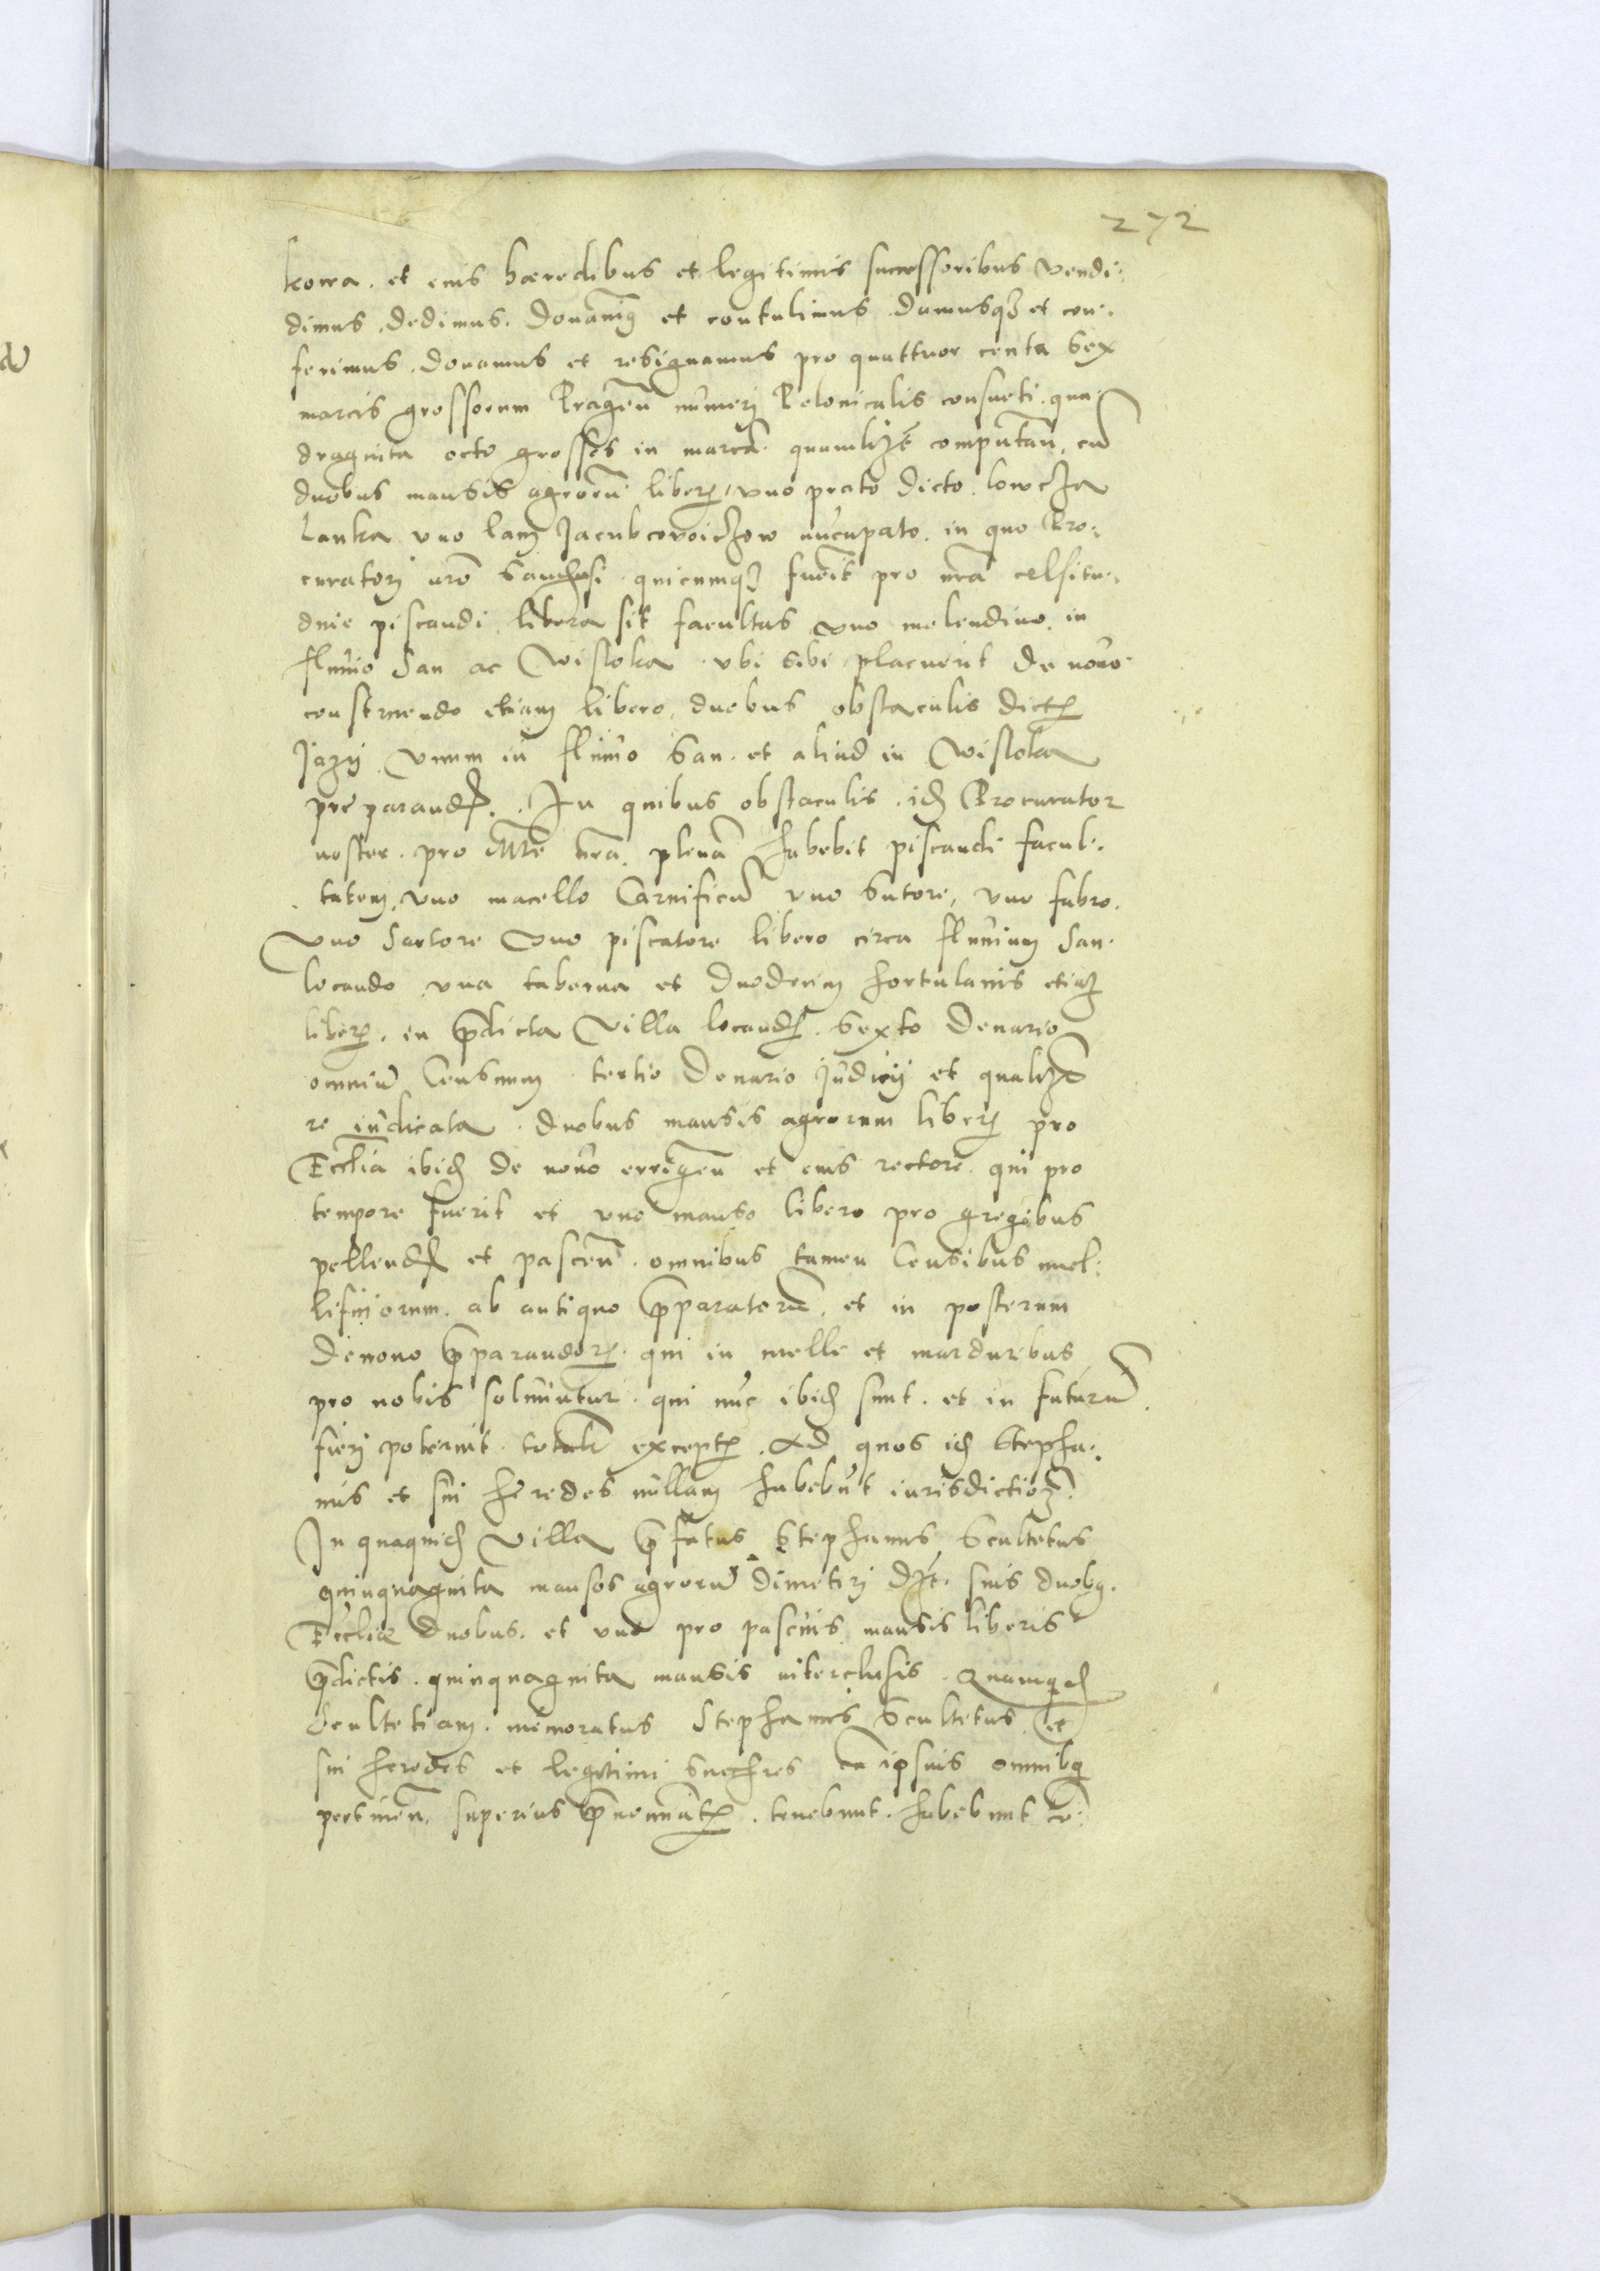 272
kowa. et eius hæredibus et legitimis successoribus vendi:
dimus, dedimus. donavimꝰ et contulimus. damusqꝫ et con:
ferimus. donamus et resignamus pro quattuor centa Sex
marcis grossorum Pragen̄ numerj Polonicalis consueti. qua:
draginta octo grossos in marcā. quamlibet computan̄. cū
duobus mansis agrorū liberꝭ, vno prato dicto. lowcza
Lanka vno lam Jacubcovoiczow nūcupato. in quo Pro:
curatorj nrō quicumqꝫ fuerit pro nrā celsitu:
dnie piscandi libera sit facultas vno molendino. in
fluuio San ac Wisloka. vbi sibi placuerit de nouo
construendo etiam libero, duobus obstaculis dictꝭ
Jazy. Vnum in fluuio San. et aliud in Wisloka
preparandꝭ. In quibus obstaculis. idē Procurator
noster. pro Mte nrā. plenā habebit piscandi facul:
tatem. vno macello Carnificū vno Sutore, vno fabro.
Vno Sartore Vno piscatore libero circa fluuium San.
locando vna taberna et duodecim hortulanis etiam
liberꝭ. in p̄dicta Villa locandꝭ. Sexto Denario
omniū Censuum tertio Denario Judicij et qualibet
re iudicata. duobus mansis agrorum liberꝭ pro
Eccl̄ia ibidē de nouo errigen̄ et eius rectore. qui pro
tempore fuerit et vno manso libero pro gregibus
pellendꝭ et pascen̄. omnibus tamen Censibus mel:
lificiorum. ab antiquo p̄paratorū. et in posterum
Denouo p̄parandorꝭ. qui in melle et marduribus
pro nobis soluūtur. qui nūc ibidē sunt. et in futurū
fierj poterint. totalr̄ exceptꝭ. Ad quos idē Stepha:
nus et sui heredes nullam habebūt iurisdictionē.
In quaquidē Villa p̄fatus Stephanus Scultetus
quinquaginta mansos agrorū dimetirj debet. suis duobꝰ.
Eccliæ duobus. et vno pro pascuis mansis liberis
p̄dictis. quinquaginta mansis interclusis. Quamquidē
Scultetiam. memoratus Stephanus Scultetus. et
sui heredes et legitimi Succ̄sres cū ipsius omnibꝰ
pertinen̄. superius p̄nominatꝭ. tenebunt. habebunt